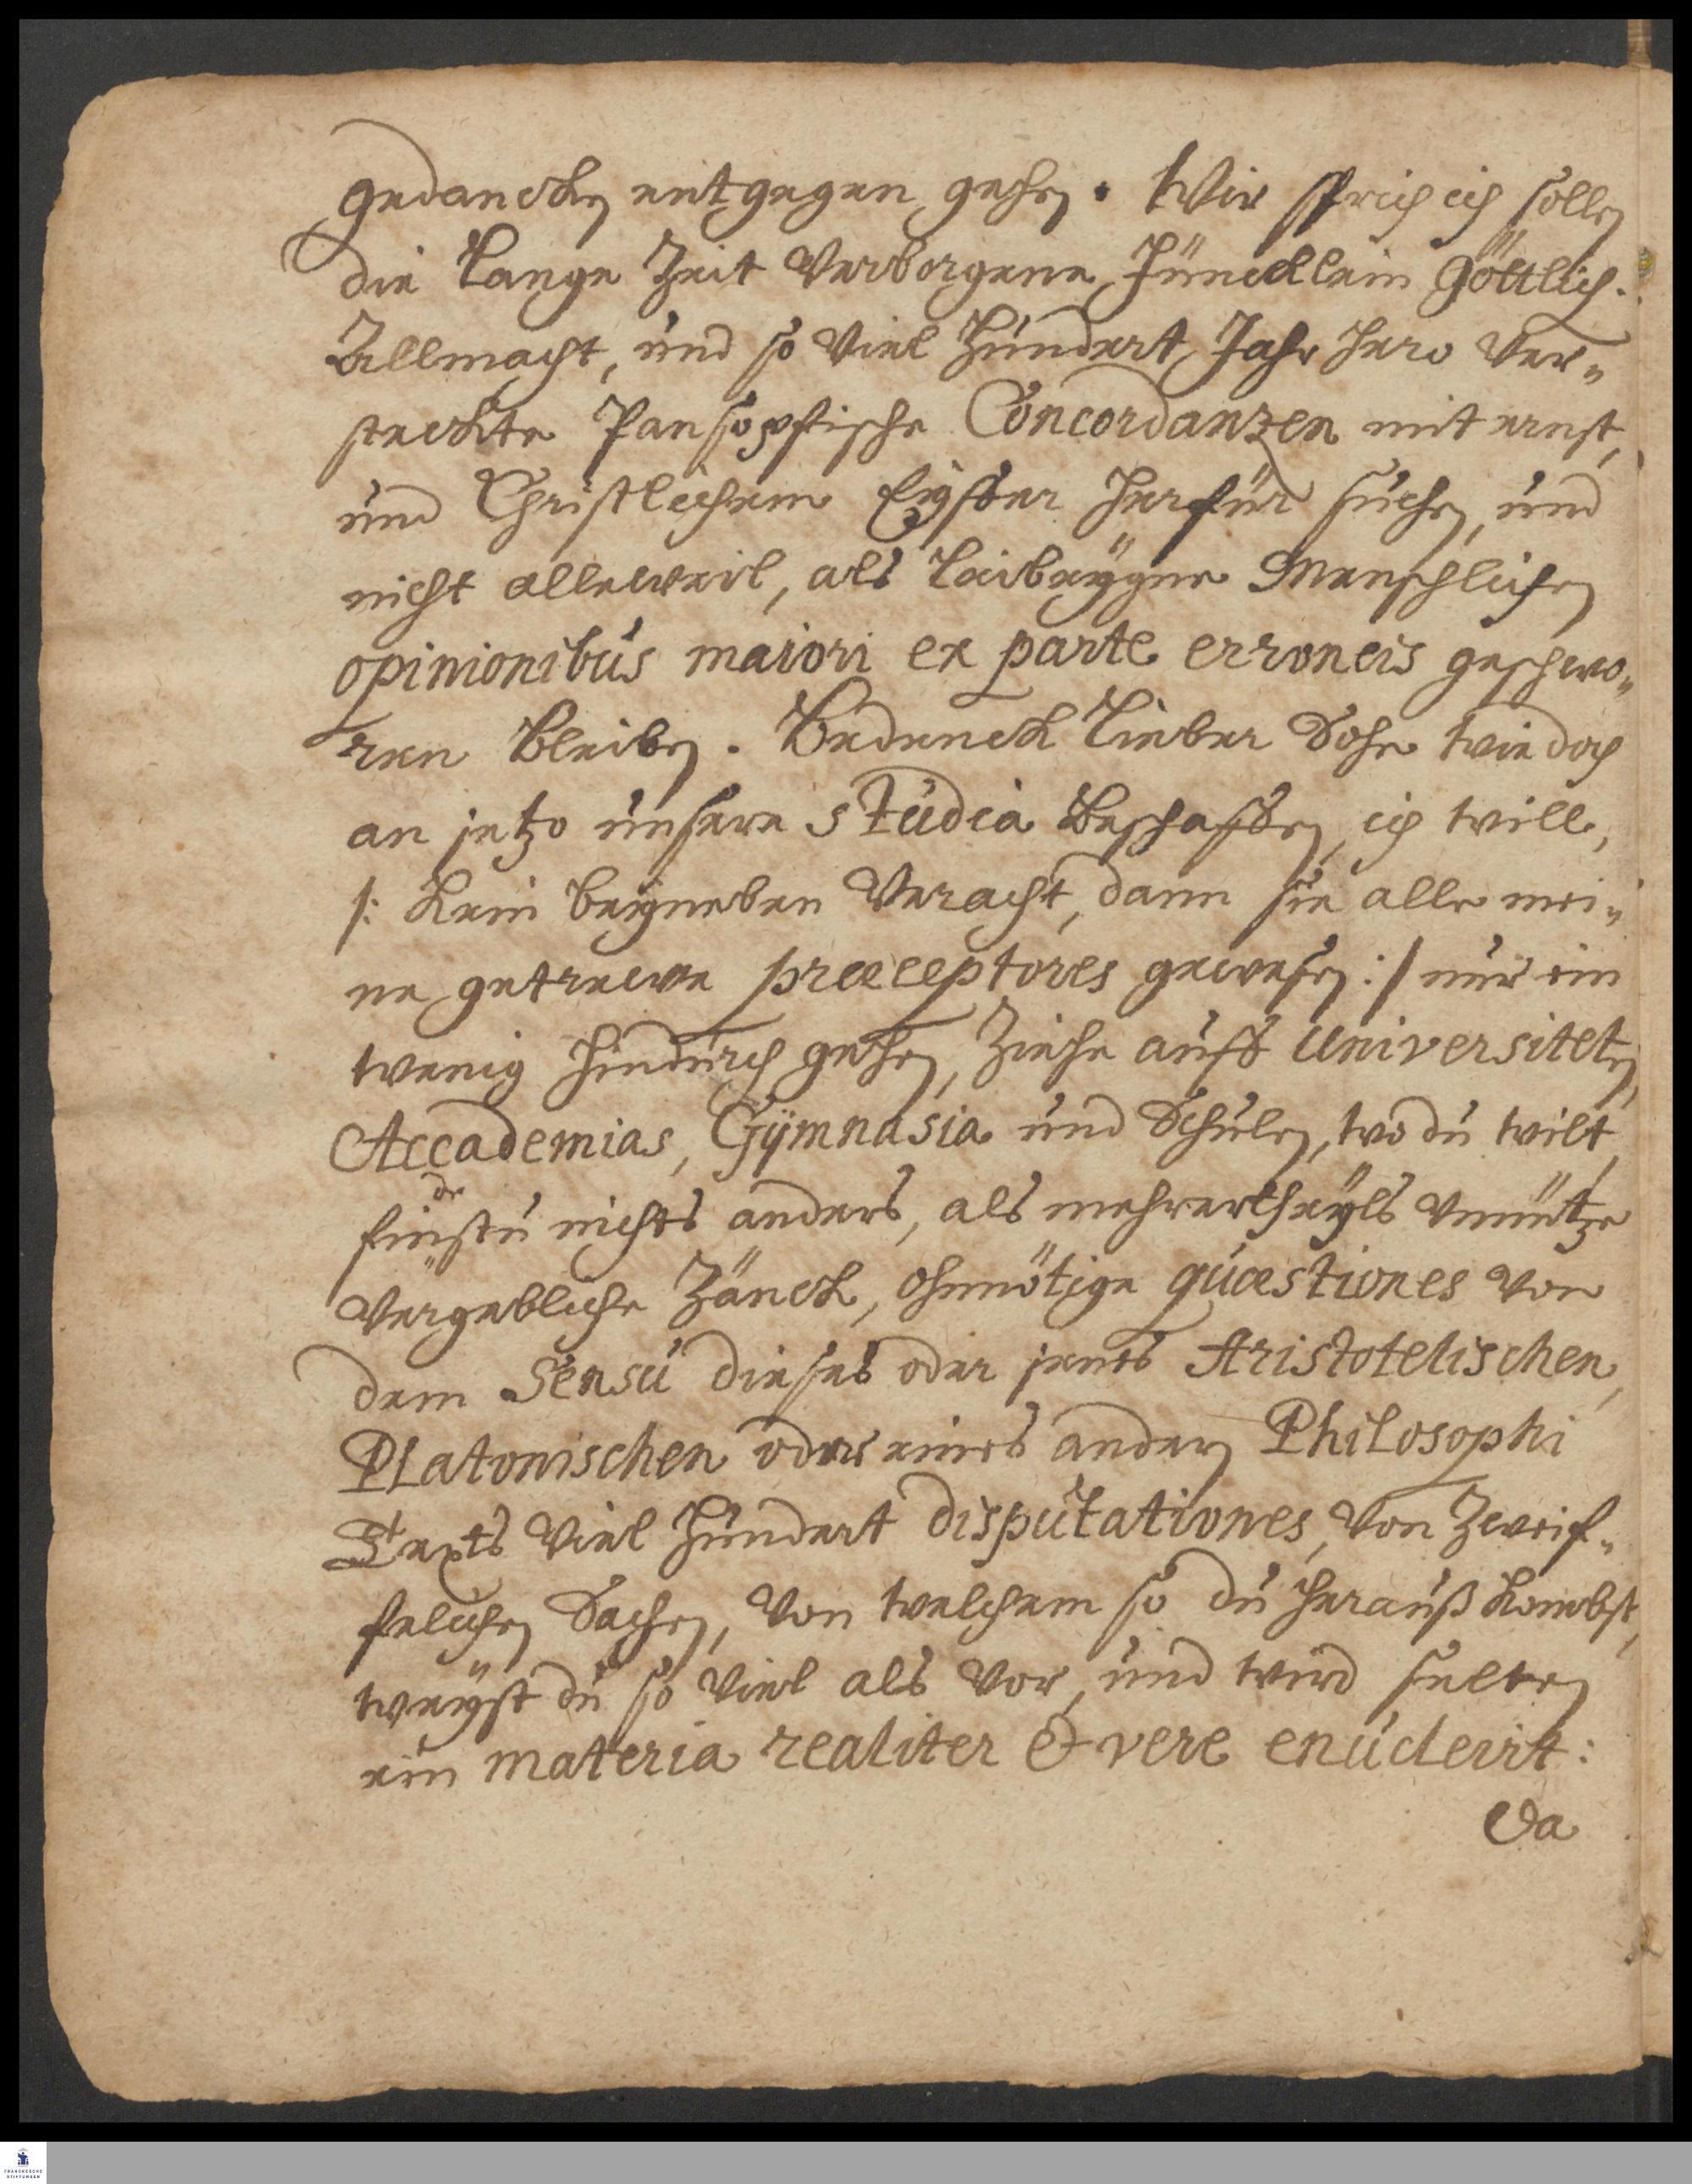 gedancken entgegen gehen. Wir sprich ich sollen
die Lange Zeit Verborgene Füncklein Göttlich.
Allmacht, und so Viel Hundert Jahr hero Ver„
steckte Pansophische Concordanzen mit ernst,
und Christlichem Eyffer herfür suchen, und
nicht alleweil, als Leibeÿgne Menschlichen
opinionibus maiori ex parte erroneis geschwo„
ren Bleiben. Bedenck Lieber Sohn wie doch
an jetzo unsere Studia Beschaffen, ich will,
/: Kein beÿneben Veracht, dann sie alle mei„
ne getrewe præceptores gewesen :/ nur ein
wenig hindurch gehen, Ziehe auff Universiteten,
Accademias, Gÿmnasia und Schulen, wo du wilt,
findestu nichts anders, als mehrertheÿls Vnnütze
Vergebliche Zänck, ohnnötige quæstiones von
dem Sensu dieses oder jenes Aristotelischen,
Platonischen oder eines andern Philosophi
Texts Viel Hundert disputationes, von Zweif„
felichen Sachen, Von welchem so du herauß kombst,
weÿst du so Viel als Vor, und wird selten
ein materia realiter & vere enucleirt:
Da
FRANCKESCHE
STIFTUNGEN